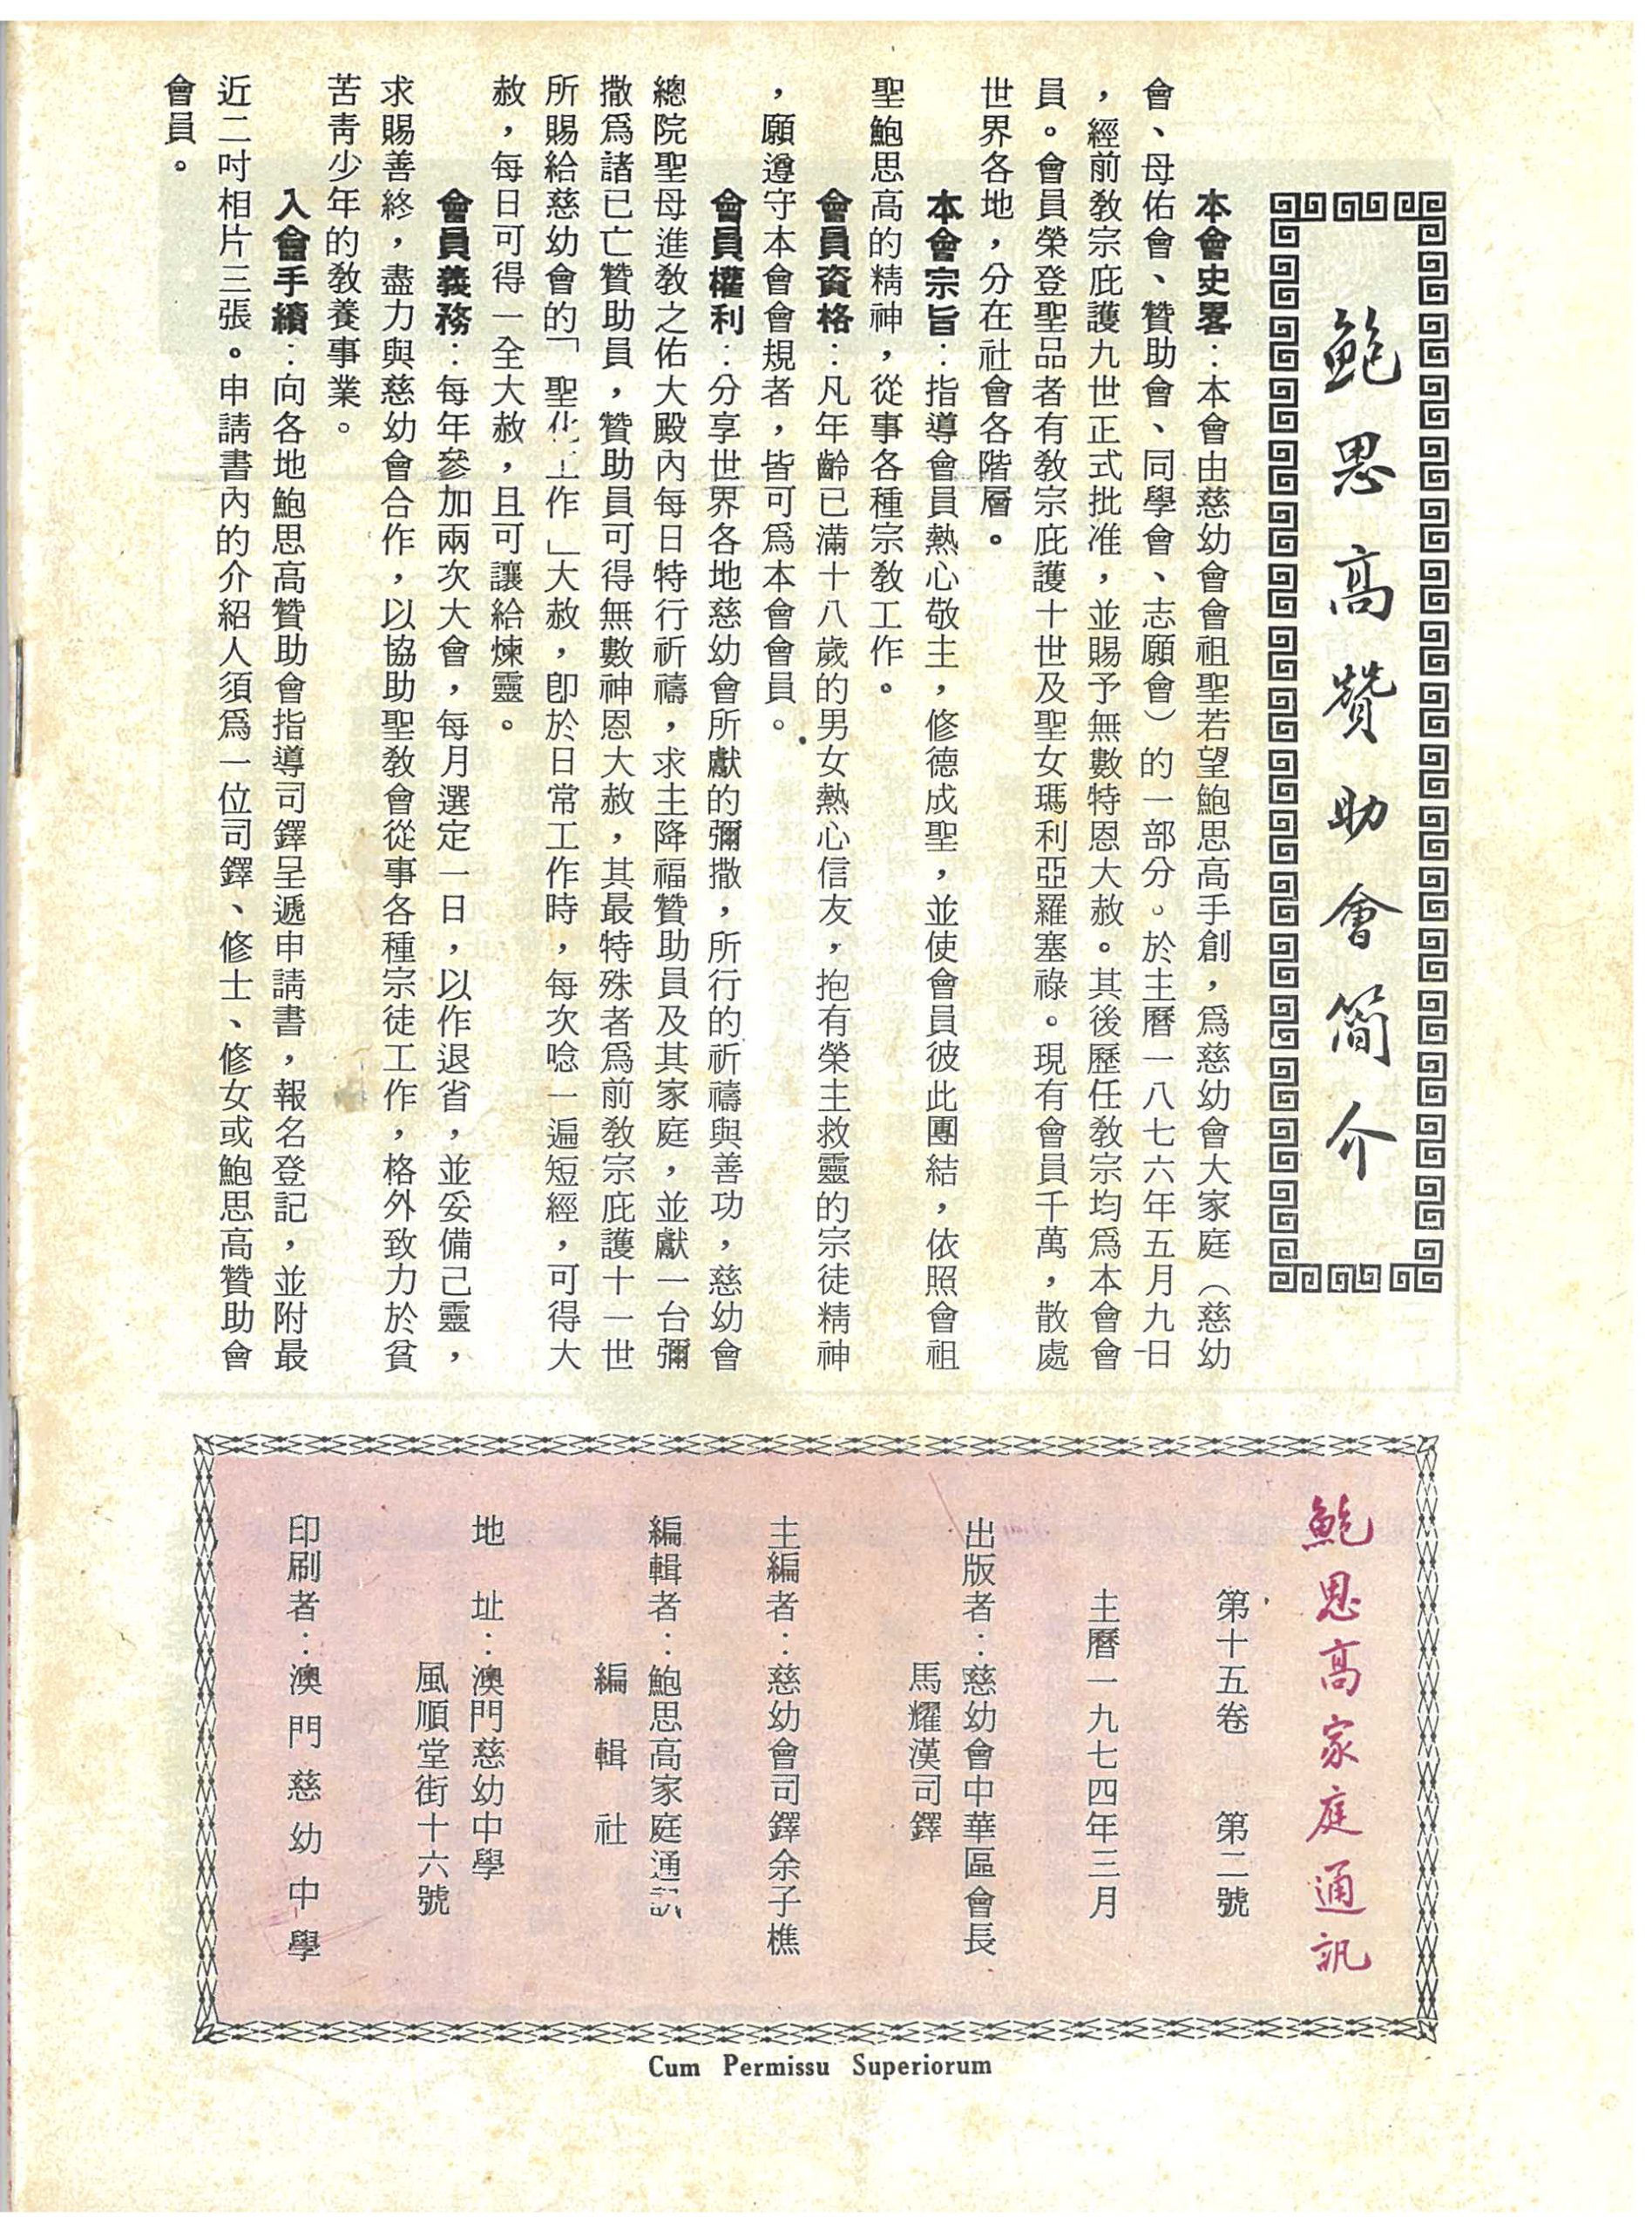 鮑思高贊助會簡介
本會史畧：本會由慈幼會會祖聖若望鮑思高手創，爲慈幼會大家庭（慈幼
會、母佑會、贊助會、同學會、志願會）的一部分。於主曆一八七六年五月九日
，經前教宗庇護九世正式批准，並賜予無數特恩大赦。其後歷任教宗均爲本會會
員。會員榮登聖品者有教宗庇護十世及聖女瑪利亞羅塞祿。現有會員千萬，散處
世界各地，分在社會各階層。
本會宗旨：指導會員熱心敬主，修德成聖，並使會員彼此團結，依照會祖
聖鮑思高的精神，從事各種宗教工作。
會員資格：凡年齡已滿十八歲的男女熱心信友，抱有榮主救靈的宗徒精神
，願遵守本會會規者，皆可爲本會會員。
會員權利：分享世界各地慈幼會所獻的彌撒，所行的祈禱與善功，慈幼會
總院聖母進教之佑大殿內每日特行祈禱，求主降福贊助員及其家庭，並獻一台彌
撒爲諸已亡贊助員，贊助員可得無數神恩大赦，其最特殊者爲前教宗庇護十一世
所賜給慈幼會的「聖化工作」大赦，卽於日常工作時，每次唸一遍短經，可得大
赦，每日可得一全大赦，且可讓給煉靈。
會員義務：每年參加兩次大會，每月選定一日，以作退省，並妥備己靈，
求賜善終，盡力與慈幼會合作，以協助聖教會從事各種宗徒工作，格外致力於貧
苦靑少年的教養事業。
入會手續：向各地鮑思高贊助會指導司鐸呈遞申請書，報名登記，並附最
近二吋相片三張。申請書內的介紹人須爲一位司鐸、修士、修女或鮑思高贊助會
會員。
鮑思高家庭通訊
第十五卷 第二號
主曆一九七四年三月
出版者：慈幼會中華區會長
馬耀漢司鐸
主編者：慈幼會司鐸余子樵
編輯者：鮑思高家庭通訊
編輯社
地址：澳門慈幼中學
風順堂街十六號
印刷者：澳門慈幼中學
Cum Permissu Superiorum